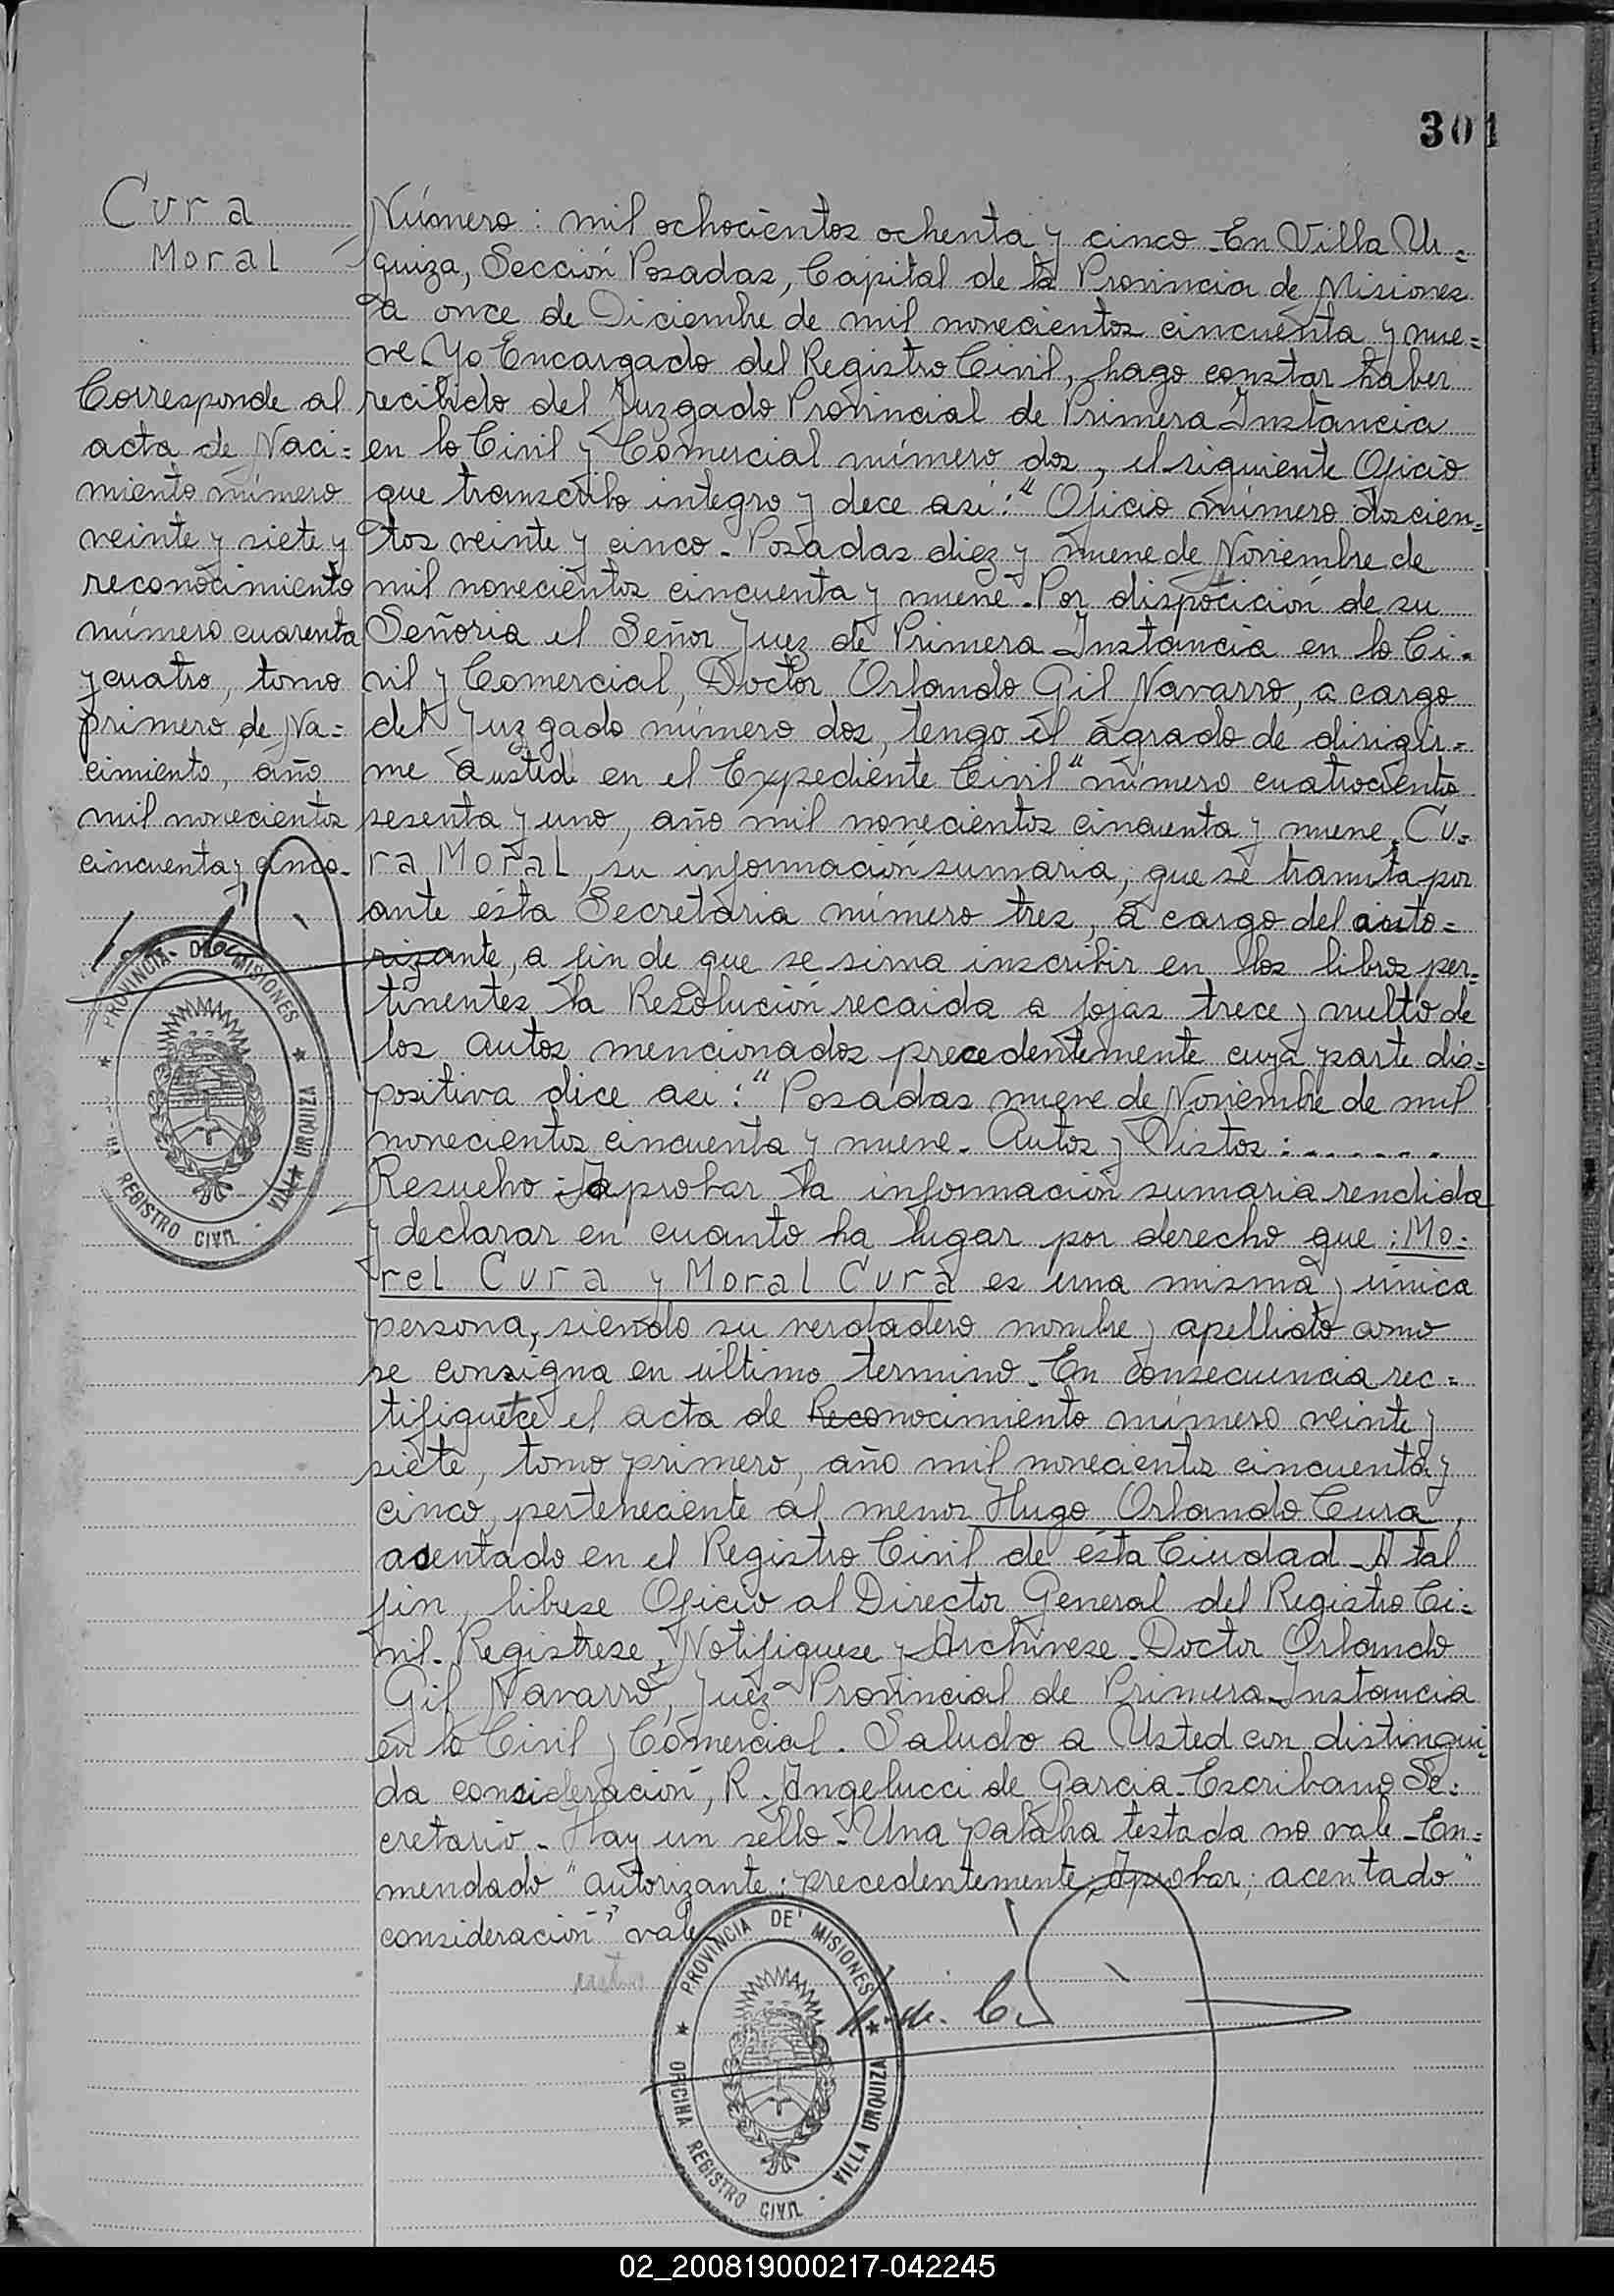 301
Cura
Moral
Corresponde al
acta de Naci=
miento número
veinte y siete y
reconocimiento
número cuarenta
y cuatro, tomo
primero de Na=
cimiento, año
mil novecientos
cincuenta y cinco.
PROVINCIA DE MISIONES
REGISTRO CIVIL · VILLA URQUIZA
Número: mil ochocientos ochenta y cinco - En Villa Ur=
quiza, Sección Posadas, Capital de la Provincia de Misiones
a once de Diciembre de mil novecientos cincuenta y nue=
ve. Yo Encargado del Registro Civil, hago constar haber
recibido del Juzgado Provincial de Primera Instancia
en lo Civil y Comercial número dos, el siguiente Oficio
que transcribo integro y dece asi: "Oficio número doscien=
tos veinte y cinco - Posadas diez y nueve de Noviembre de
mil novecientos cincuenta y nueve - Por dispocición de su
Señoria el Señor Juez de Primera Instancia en lo Ci-
vil y Comercial, Doctor Orlando Gil Navarro, a cargo
del Juzgado número dos, tengo el agrado de dirigir=
me a usted en el Expediente Civil "número cuatrocientos
sesenta y uno, año mil novecientos cincuenta y nueve. Cu-
ra Moral, su información sumaria, que se tramita por
ante ésta Secretaria número tres, a cargo del auto=
rizante, a fin de que se sirva inscribir en los libros per=
tinentes la Resolución recaida a fojas trece y vuelto de
los autos mencionados precedentemente cuya parte dis=
positiva dice asi: "Posadas nueve de Noviembre de mil
novecientos cincuenta y nueve - Autos y Vistos: - - - - - -
Resuelvo: Aprobar la información sumaria rendida
y declarar en cuanto ha lugar por derecho que: Mo-
rel Cura y Moral Cura es una misma y única
persona, siendo su verdadero nombre y apellido como
se consigna en último termino - En consecuencia rec=
tifiquece el acta de Reconocimiento número veinte y
siete, tomo primero, año mil novecientos cincuenta y
cinco, perteneciente al menor Hugo Orlando Cura,
acentado en el Registro Civil de ésta Ciudad - A tal
fin, librese Oficio al Director General del Registro Ci=
vil - Registrese, Notifiquese y Archivese - Doctor Orlando
Gil Navarro, Juez Provincial de Primera Instancia
en lo Civil y Comercial. Saludo a Usted con distingui=
da consideración, R. Angelucci de Garcia - Escribano Se=
cretario - Hay un sello - Una palabra testada no vale - En=
mendado "autorizante; precedentemente; Aprobar; acentado"
consideración" vale
PROVINCIA DE MISIONES
OFICINA REGISTRO CIVIL · VILLA URQUIZA
02_200819000217-042245